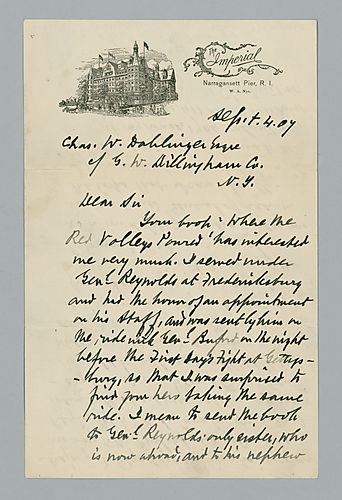 The Imperial
Narragansett Pier, R. I.
W. A. Nye.
Sept. 4. 07
Chas. W. Dahlinger Esqre
c/ G. W. Dillingham Co.
N. Y.
Dear Sir
Your book "Where the
Red Volleys Poured" has interested
me very much. I served under
Genl. Reynolds at Fredericksburg
and had the honor of an appointment
on his Staff, and was sent by him on
the ride with Genl. Buford on the night
before the First Day's Fight at Gettys-
burg, so that I was surprised to
find your hero taking the same
ride. I mean to send the book
to Genl. Reynolds' only sister, who
is now abroad, and to his nephew